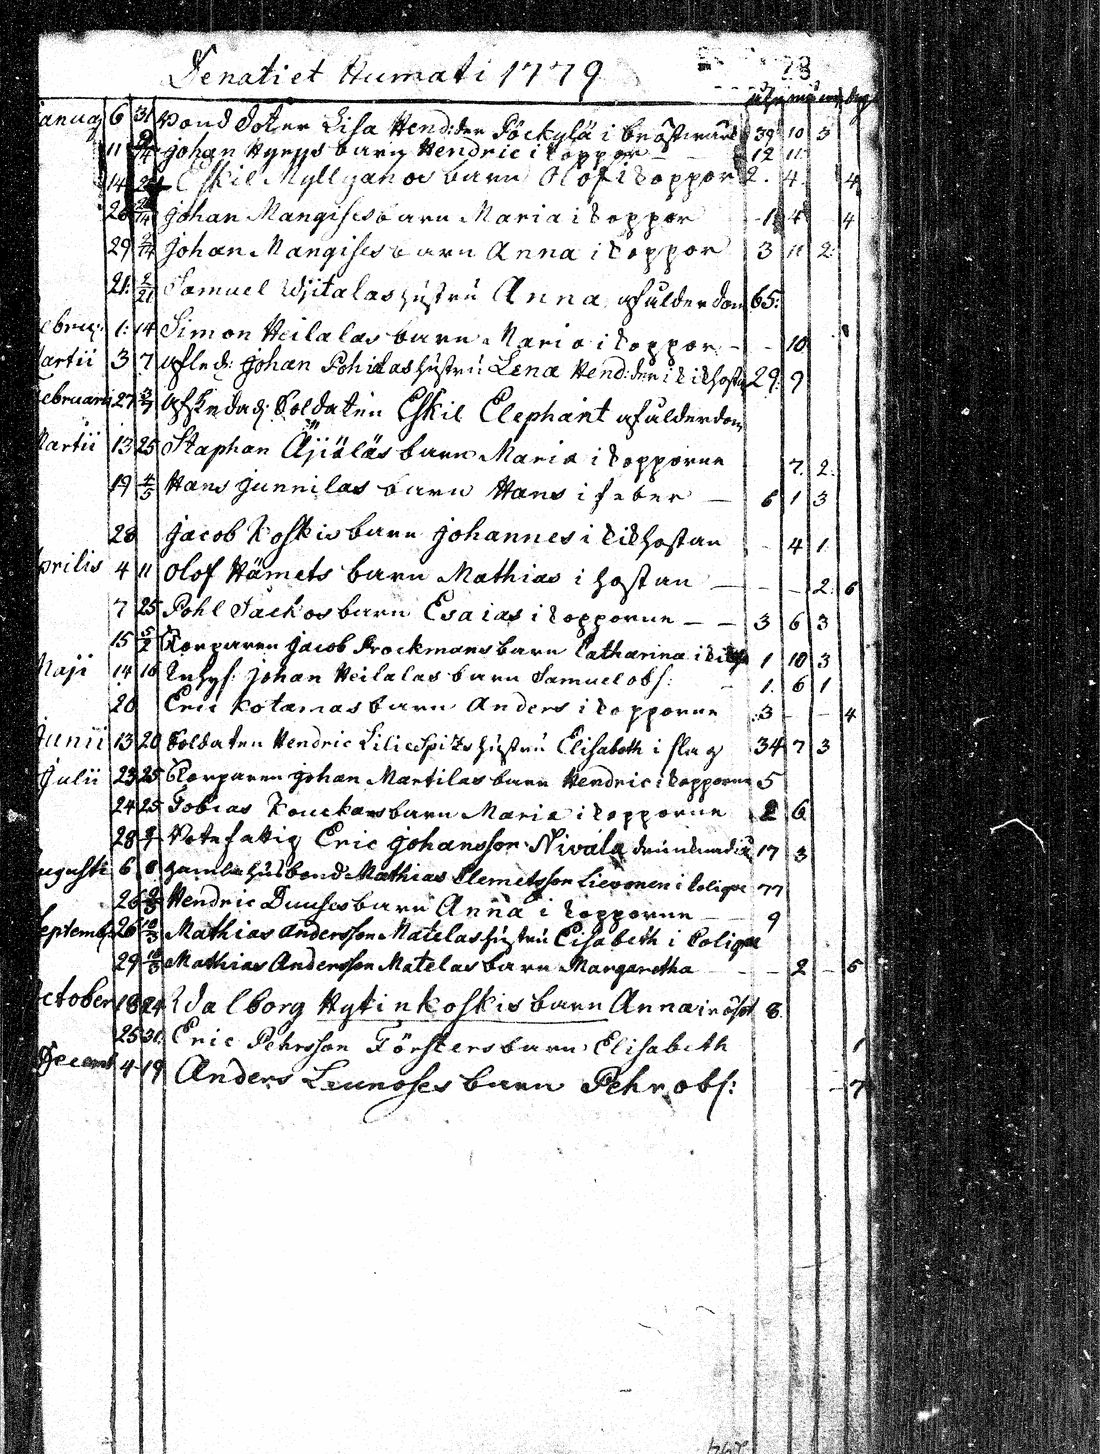 Denati et Humati 1779
23
Januar 6 31 Bond Doter Lisa Hend:der Pöckylä i bröstvärk 39 10 3
11 Johan Hyryys barn Hendric i koppor 12 11
14 24 Eskil Myllyganos barn Olof i koppor 2. 4. 4
Johan Mangises barn Maria i koppor 1 4 4
29 Johan Mangises barn Anna i koppor 3 11 2
21. 2/21 Samuel Wjitalas hustru Anna af ålderdom 65:
ebru: 1: 14 Simon Heilalas barn Maria i koppor 10
artii 3 7 afled: Johan Pohilas hustru Lena Hend:der i kikhosta 29. 9
ebruarii 27 afskedad: Soldaten Eskil Elephant af ålderdom
Martii 13 25 Staphan Äijäläs barn Maria i kopporne 7. 2.
19 4/5 Hans Junnilas barn Hans i feber 6 1 3
28 Jacob Koskis barn Johannes i kikhostan 4 1.
prilis 4 11 Olof Hämets barn Mathias i hostan 2. 6
7 25 Pohl Säckos barn Esaias i kopporne 3 6 3
15 5/2 Korparen Jacob Brockmans barn Catharina i 1 10 3
Maji 14 16 Inhys: Johan Heilalas barn Samuel obs: 1. 6 1
20 Eric Kotamas barn Anders i kopporne 3 4
Junii 13 20 Soldaten Hendric Liliespitz hustru Elisabeth i slag 34 7 3
Julii 23 25 Korparen Johan Martilas barn Hendric i kopporne 5
24 25 Tobias Kouckars barn Maria i kopporne 2 6
28 Rotefattig Eric Johansson Nivala 17 3
ugusti 6 8 gamle husbond Mathias Clemetsson Lievonen i Colique 77
26 Hendric Duuses barn Anna i kopporne 9
Septemb 26 10/3 Mathias Andersson Matelas hustru Elsabeth i Colique
29 10/3 Mathias Andersson Matelas barn Margaretha 2 6
ctober 18 24 Walborg Hytinkoskis barn Anna i röst 8.
25 31 Eric Pehrsson Försters barn Elisabeth 1
Decemb 4 19 Anders Leunoses barn Pehr obs: 7